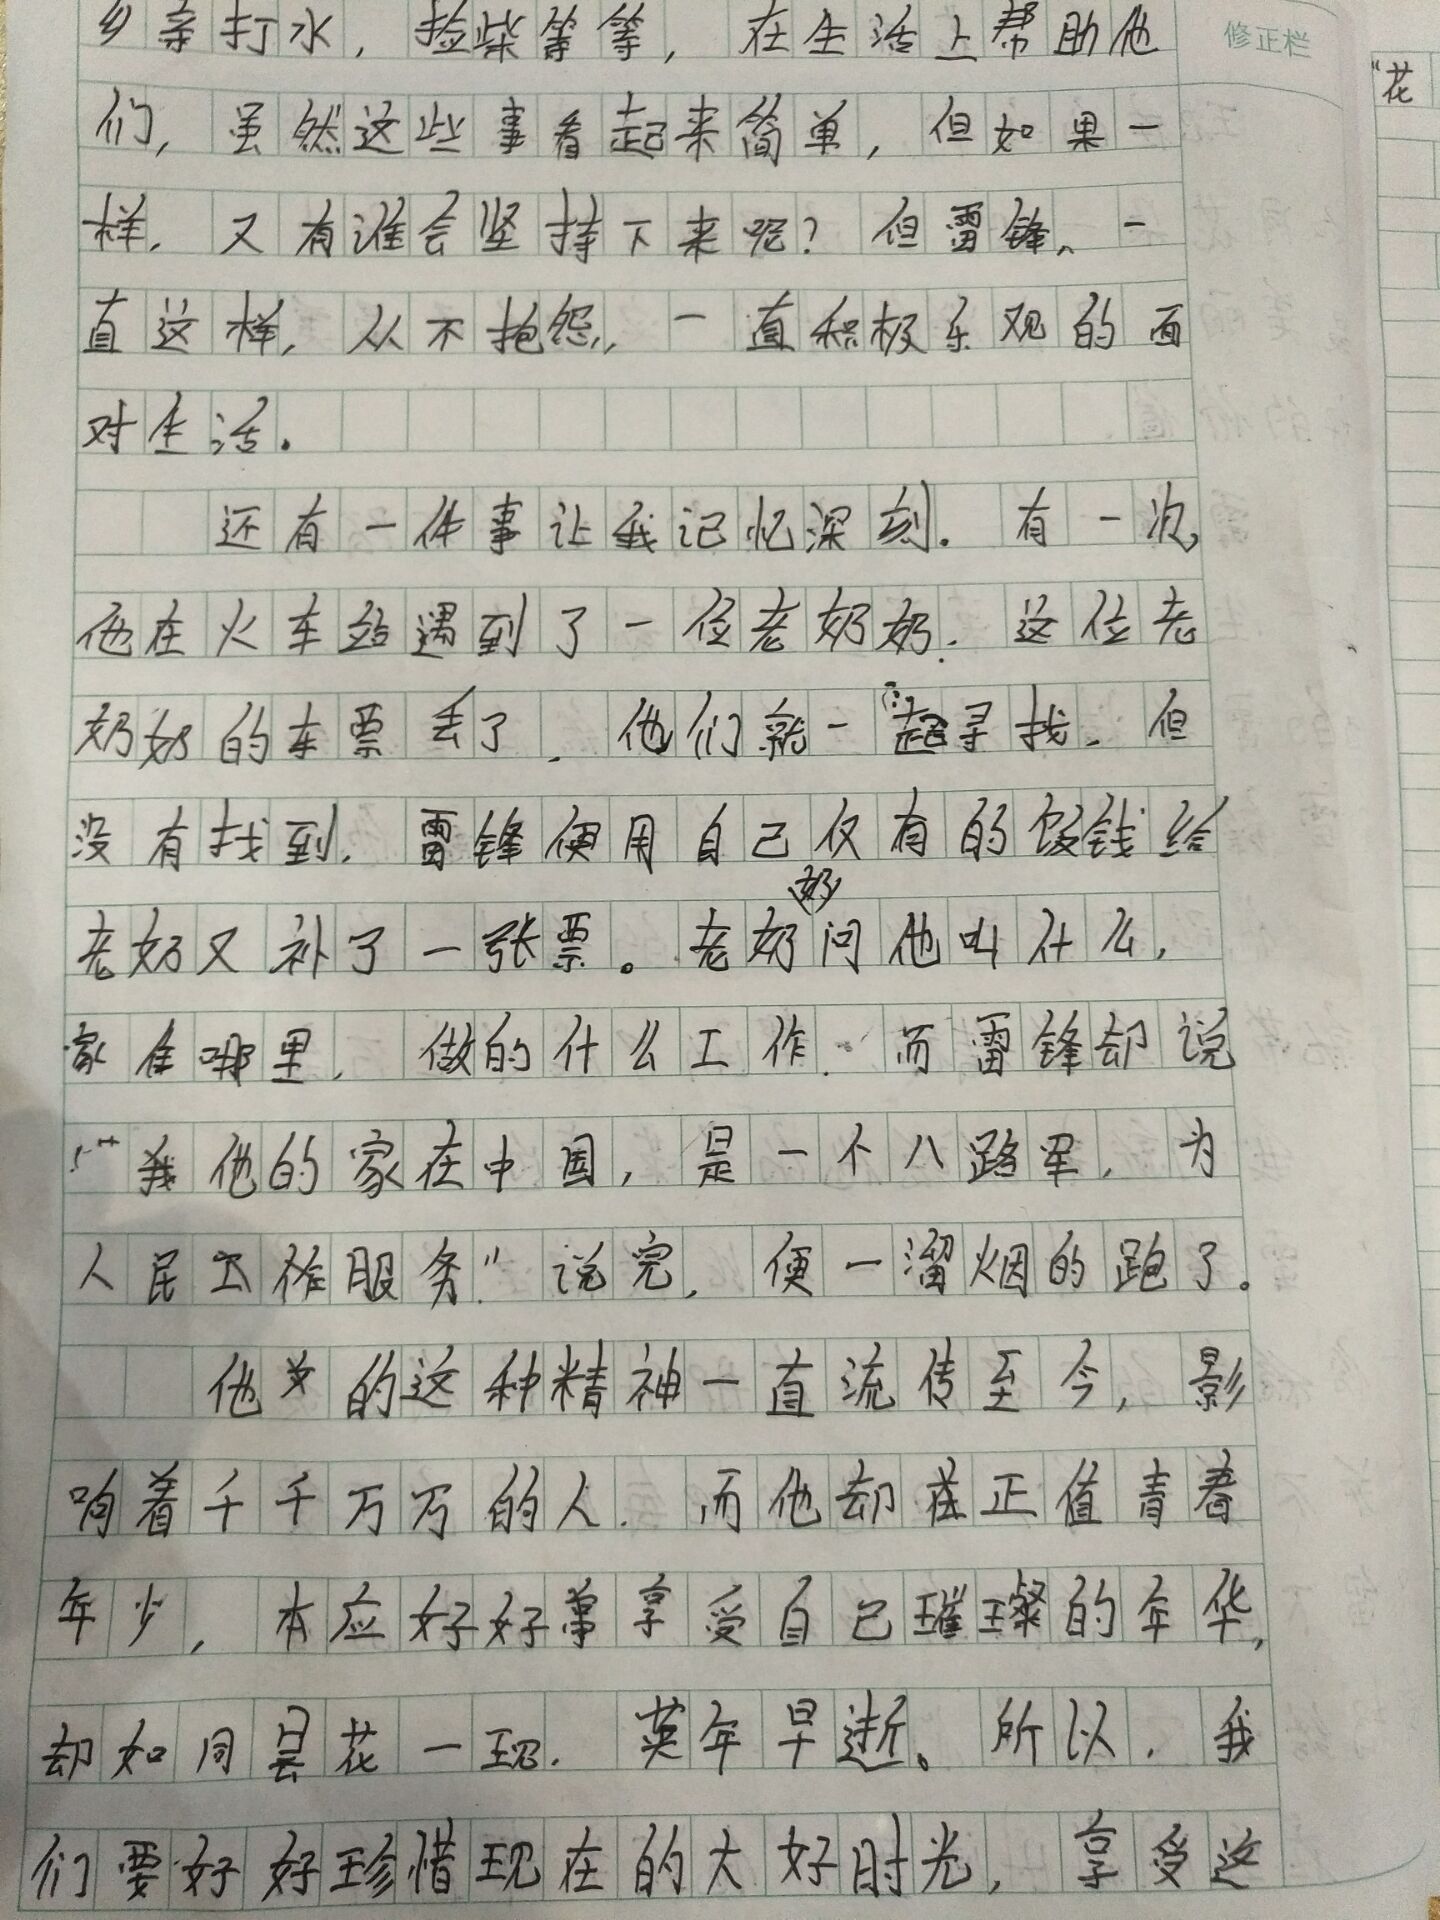 修正栏
"花
乡亲打水，捡柴等等，在生活上帮助他
们，虽然这些事看起来简单，但如果一
样，又有谁会坚持下来呢？但雷锋、一
直这样，从不抱怨，一直积极乐观的面
对生活。
还有一件事让我记忆深刻。有一次，
他在火车站遇到了一位老奶奶．这位老
奶奶的车票丢了．他们就一起寻找．但
没有找到．雷锋便用自己仅有的饭钱给
老奶又补了一张票。老奶奶问他叫什么，
家住哪里，做的什么工作．而雷锋却说
"我他的家在中国，是一个八路军，为
人民工作服务."说完，便一溜烟的跑了。
他的这种精神一直流传至今，影
响着千千万万的人．而他却在正值青春
年少，本应好好享受自己璀璨的年华，
却如同昙花一现．英年早逝。所以，我
们要好好珍惜现在的大好时光，享受这